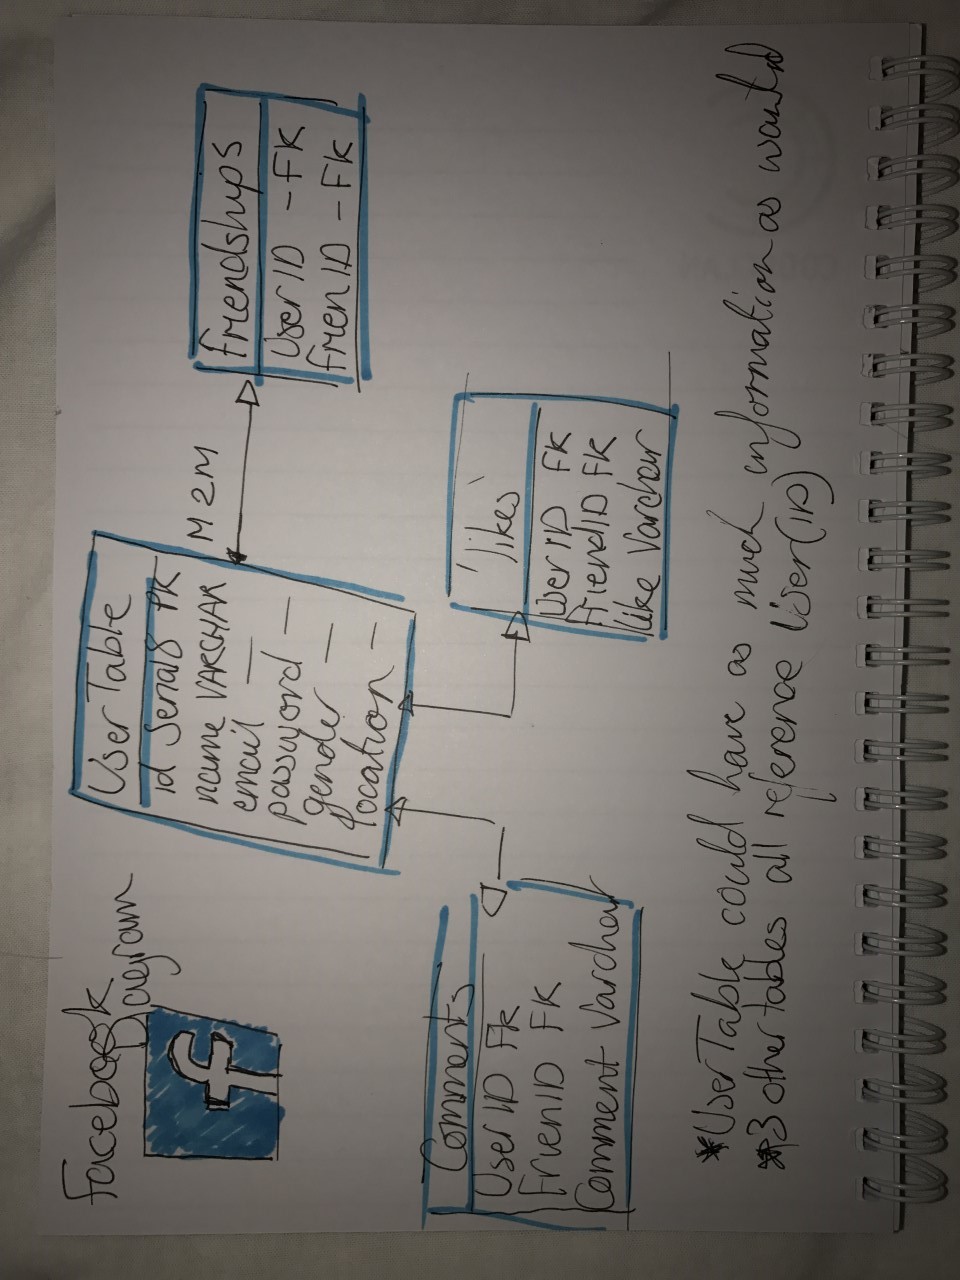 Facebook
Diagram
f
User Table
id Serial8 PK
name VARCHAR
email —
password —
gender —
location –
M2M
friendships
User ID - FK
frienID - FK
Comments
User ID FK
FrienID FK
Comment Varchar
'likes'
User ID FK
friendID FK
like Varchar
*User Table could have as much information as wanted
*3 other tables all reference User(ID)